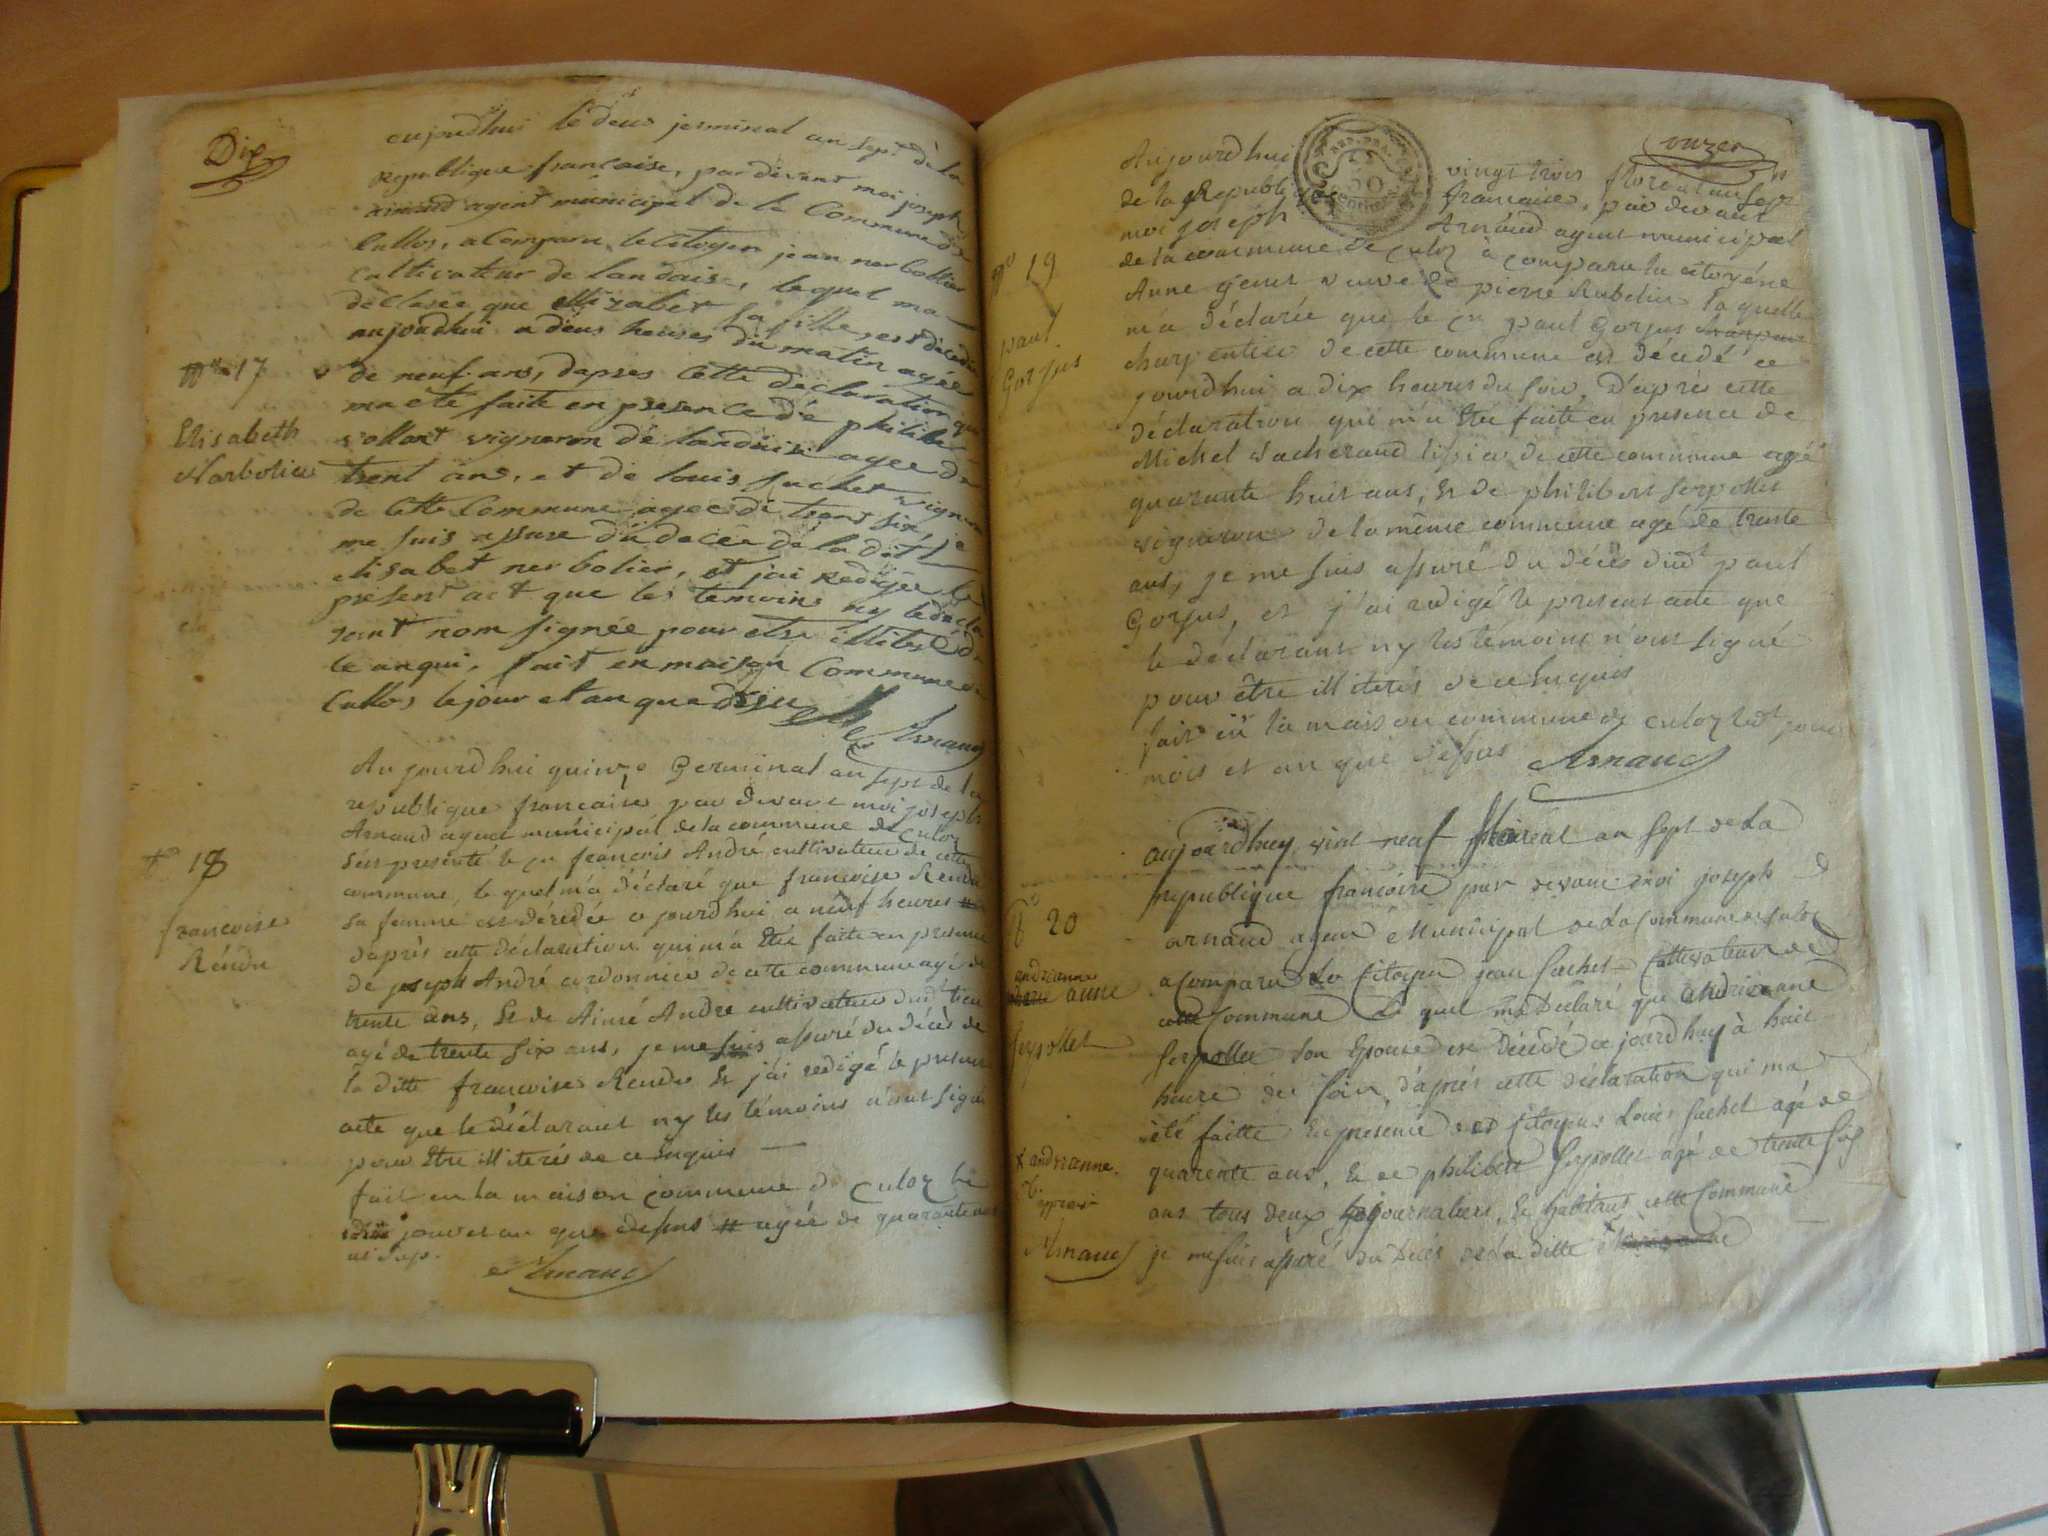 Dix
aujourdhui le deus jerminal an sept de la
republique francaise, par devant moi joseph
arnaud agent municipal de la Commune de
Cullos, a Comparu le Citoyen jean nerbollier
Cultivateur de landaise, lequel ma
declaree que Elizabet sa fille, est décédée
aujoudhui a deus heures du matin agée
N° 17
de neuf ans, dapres Cette declaration qui
ma eté faite en presence dé philibe
Elisabeth
vollont vigneron dé landaise agee de
Narbolier
trent ans, et de louis suchet vigneron
de Cette Commune agee de trent six, je
me suis assure du decée de la dit
elisabet nerbolier, et jai redigée le
present act que les temoins ny le decla
rant nom signée pour etre illiteré de
le anqui, fait en maison Commune de
Cullos le jour et an que desu
Arnaud
Aujourd'hui quinze Germinal an sept de la
republique francaise, par devant moi joseph
Arnaud agent municipal de la commune de Culoz
N° 18
s'est presenté le cn francois André cultivateur de cette
commune, le quel m'a déclaré que francoise Rendu
francoise
Réndu
sa femme est décédée ce jourd'hui a neuf heures #
d'aprés cette déclaration qui m'a Eté faite en presence
de joseph André cordonnier de cette commune agé de
trente ans, Et de Aimé André cultivateur dudt lieu
agé de trente six ans, je me suis assuré du décès de
la ditte francoise Rendu Et j'ai redigé le present
acte que le déclarant ny les témoins n'ont signé
pour Etre illiterés de ce Enquis
fait en la maison commune de Culoz le
jour et an que dessus # agée de quarante
Arnaud
onzer
REP. FRA.
50
Centimes
Aujourdhui vingt trois floreal an sept
de la Republique francaise, par devant
moi joseph Arnaud agent municipal
de la commune de Culoz à comparu la citoyéne
N° 19
Anne veuve de pierre Rubelin la quelle
m'a déclarée que le cn paul Gorjus
paul
Gorjus
charpentier de cette commune est décédé ce
jourdhui a dix heures du soir, D'aprés cette
déclaration qui m'a Eté faite en presence de
Michel Vacherand tissier de cette commune agé
quarante huit ans, Et de philibert serpollet
vigneron de la même commune agé de trente
ans, je me suis assuré du décès dudt paul
Gorjus, et j'ai redigé le present acte que
le déclarant ny les témoins n'ont signé
pour être illiterés de ce Enquis
fait en la maison commune de Culoz ledt jour
mois et an que dessus Arnaud
aujourdhuy vint neuf floreal an sept de La
republique francoise par devant moi joseph
N° 20
arnaud agent Municipal de La Commune de Culoz
andrianne
anne
a Comparu Le Citoyen jean suchet Cultivateur de
cette Commune Le quel ma Déclaré que andrieane
serpollet
serpollet son Epouse est Décédé ce jourdhuy à huit
heure du soir, d'aprés cette déclaration qui ma
été faitte En présence des Citoyens Louis suchet agé de
quarente ans, Et de philibert serpollet agé de trente six
x andrianne.
approuvé
ans tous deux journaliers, Et habitans cette Commune
Arnaud
je me suis assuré du Décès de La ditte